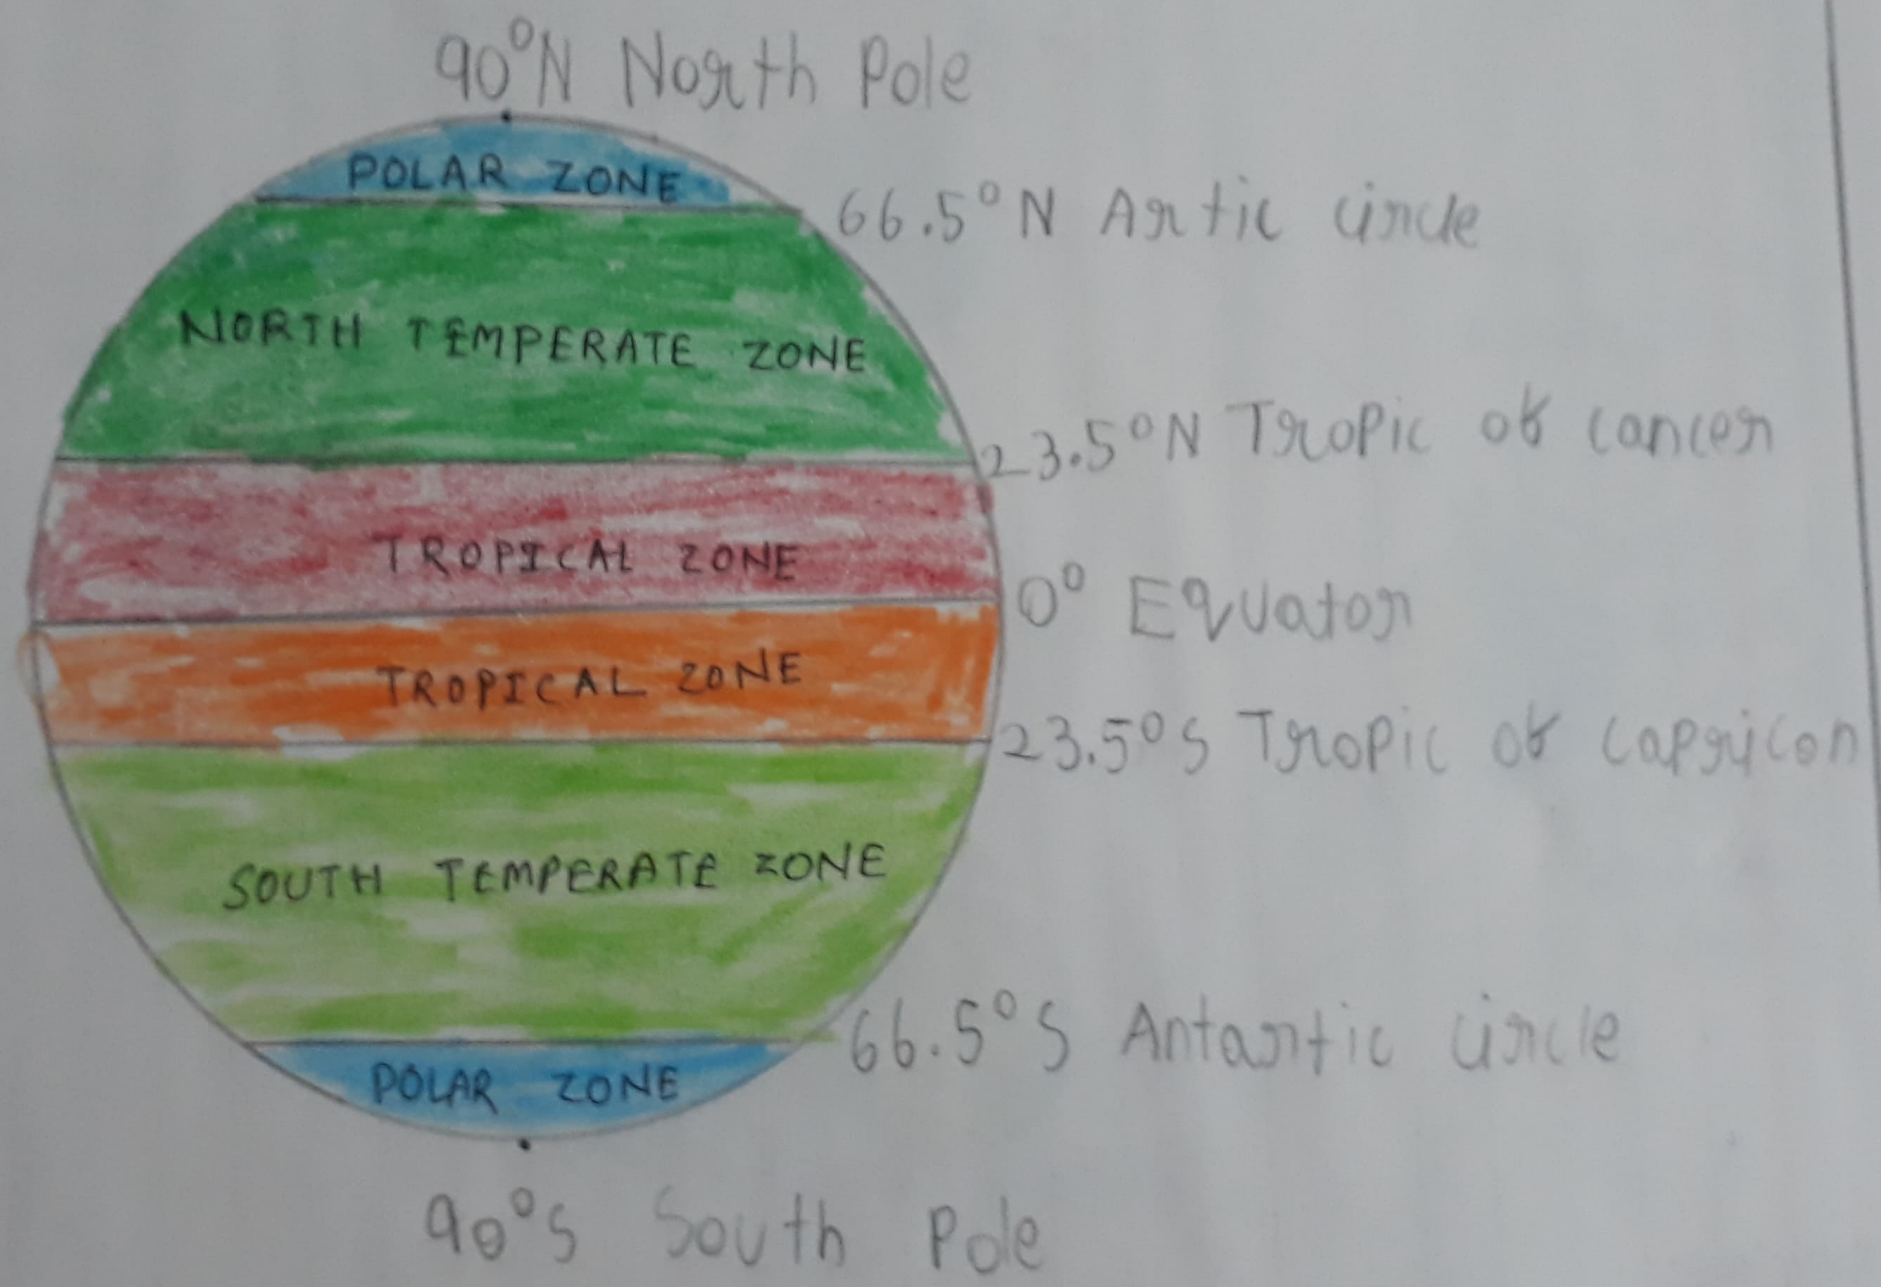 90°N North Pole
POLAR ZONE
66.5°N Artic circle
NORTH TEMPERATE ZONE
23.5°N Tropic of cancer
TROPICAL ZONE
0° Equator
TROPICAL ZONE
23.5°S Tropic of capricon
SOUTH TEMPERATE ZONE
66.5°S Antartic circle
POLAR ZONE
90°S South Pole